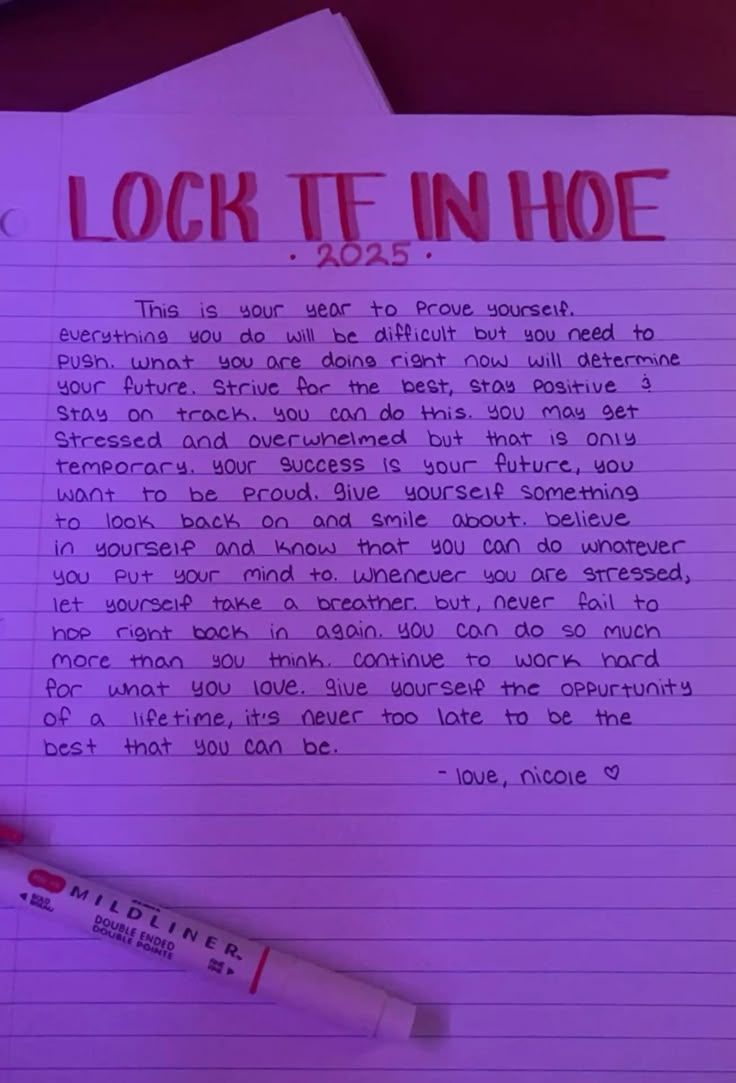 LOCK TF IN HOE
· 2025 ·
This is your year to prove yourself.
everything you do will be difficult but you need to
push. what you are doing right now will determine
your future. strive for the best, stay positive &
stay on track. you can do this. you may get
stressed and overwhelmed but that is only
temporary. your success is your future, you
want to be proud. give yourself something
to look back on and smile about. believe
in yourself and know that you can do whatever
you put your mind to. whenever you are stressed,
let yourself take a breather. but, never fail to
hop right back in again. you can do so much
more than you think. continue to work hard
for what you love. give yourself the oppurtunity
of a lifetime, it's never too late to be the
best that you can be.
- love, nicole ♡
MILDLINER
DOUBLE ENDED
DOUBLE POINTE